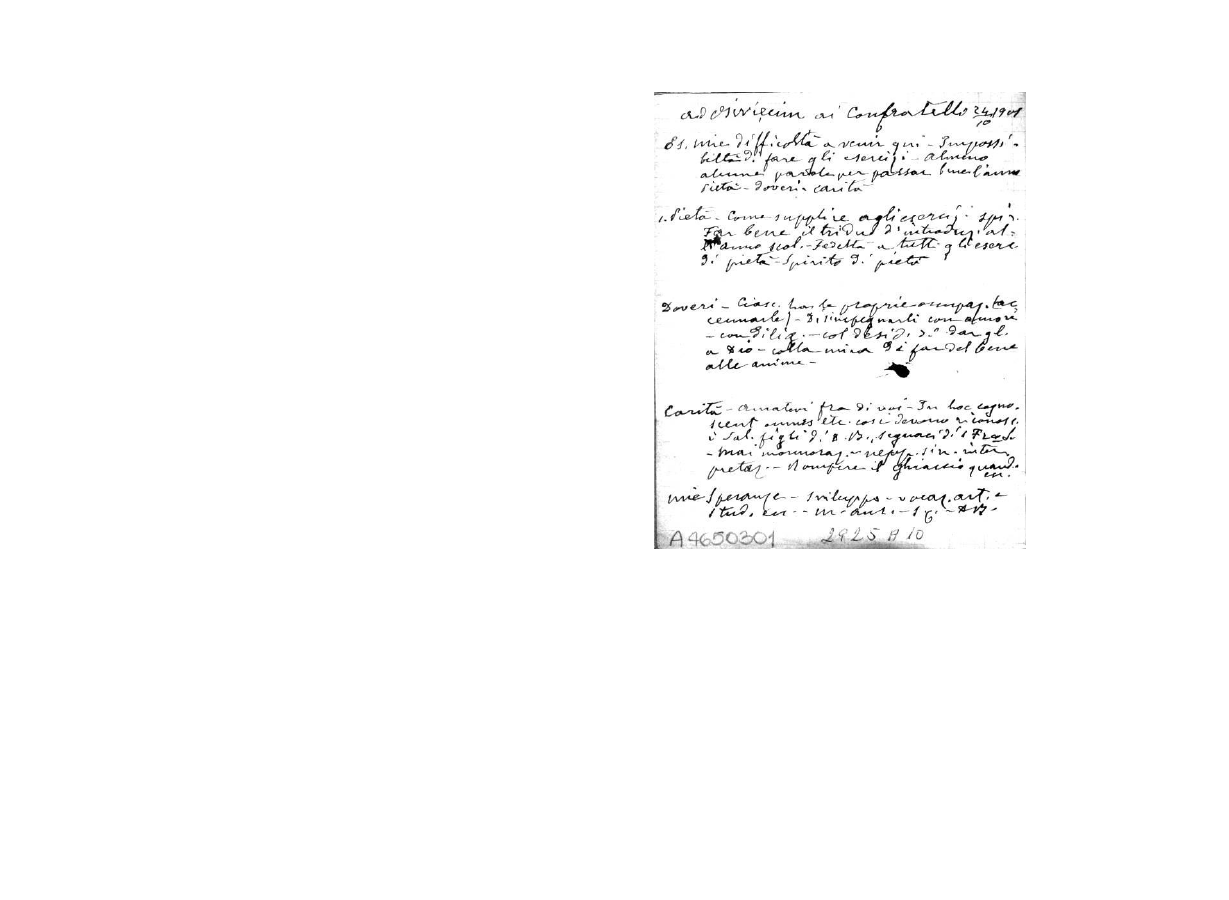 ad Osvięcim ai Confratello 24/10 1901
Es. mie difficoltà a venir qui - Impossi-
biltà di fare gli esercizi - almeno
alcune parole per passar bene l'anno
Pietà - Doveri - carità
1. Pietà - Come supplire agli esercizj spir.
Far bene il triduo d'introduz. al-
l'anno scol. - Fedeltà a tutti gli eserc
di pietà - Spirito di pietà
Doveri - Ciasc. ha le proprie occupaz. (ac
cennarle) - Disimpegnarli con amore
- con dilig. - col desid. di dar gl.
a Dio - colla mira di far del bene
alle anime -
Carità - Amatevi fra di voi - In hoc cogno-
scent omnes etc. così devono riconosc.
i Sal. figli di D. B., seguaci di S Fr. S.
- Mai mormoraz. - nepp. sin. inter
pretaz. - Rompere il ghiaccio quand.
mie Speranze - Sviluppo - vocaz. art. e
stud.
A4650301 2925 A 10